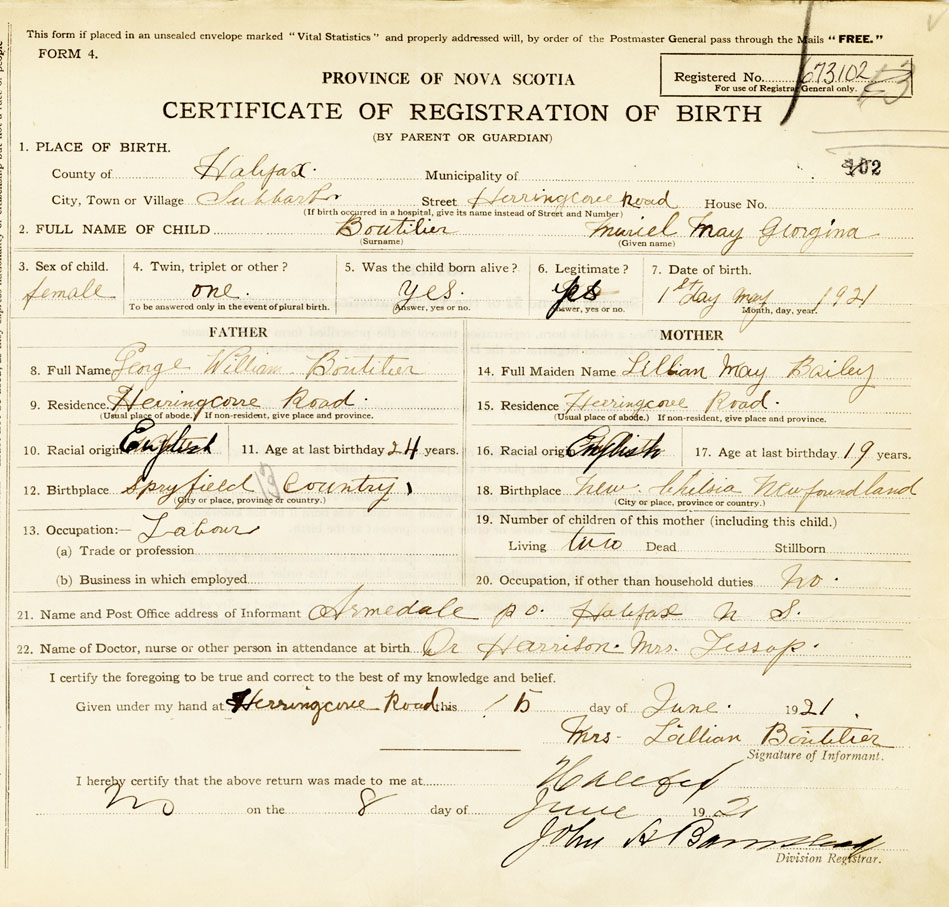 This form if placed in an unsealed envelope marked "Vital Statistics" and properly addressed will, by order of the Postmaster General pass through the Mails "FREE."
FORM 4.
PROVINCE OF NOVA SCOTIA
Registered No. 673102
For use of Registrar General only.
CERTIFICATE OF REGISTRATION OF BIRTH
(BY PARENT OR GUARDIAN)
1. PLACE OF BIRTH.
102
County of Halifax. Municipality of
City, Town or Village Street Herringcove Road House No.
(If birth occurred in a hospital, give its name instead of Street and Number)
2. FULL NAME OF CHILD Boutilier Muriel May Georgina
(Surname) (Given name)
3. Sex of child. 4. Twin, triplet or other? 5. Was the child born alive? 6. Legitimate? 7. Date of birth.
female one. yes. yes 1st day may 1921
To be answered only in the event of plural birth. Answer, yes or no. Answer, yes or no. Month, day, year.
FATHER MOTHER
8. Full Name George William Boutilier 14. Full Maiden Name Lillian May Bailey
9. Residence. Herringcove Road. 15. Residence Herringcove Road.
(Usual place of abode.) If non-resident, give place and province. (Usual place of abode.) If non-resident, give place and province.
10. Racial origin English 11. Age at last birthday 24 years. 16. Racial origin English 17. Age at last birthday 19 years.
12. Birthplace Spryfield Country, 18. Birthplace New Chelsia Newfoundland
(City or place, province or country.) (City or place, province or country.)
13. Occupation:— Labour 19. Number of children of this mother (including this child.)
(a) Trade or profession Living two Dead Stillborn
(b) Business in which employed 20. Occupation, if other than household duties No.
21. Name and Post Office address of Informant Armedale P.O. Halifax N S.
22. Name of Doctor, nurse or other person in attendance at birth Dr Harrison. Mrs. Jessop.
I certify the foregoing to be true and correct to the best of my knowledge and belief.
Given under my hand at Herringcove Road this 15 day of June. 1921
Mrs- Lillian Boutilier
Signature of Informant.
I hereby certify that the above return was made to me at Halifax
on the 8 day of June 1921
John A
Division Registrar.